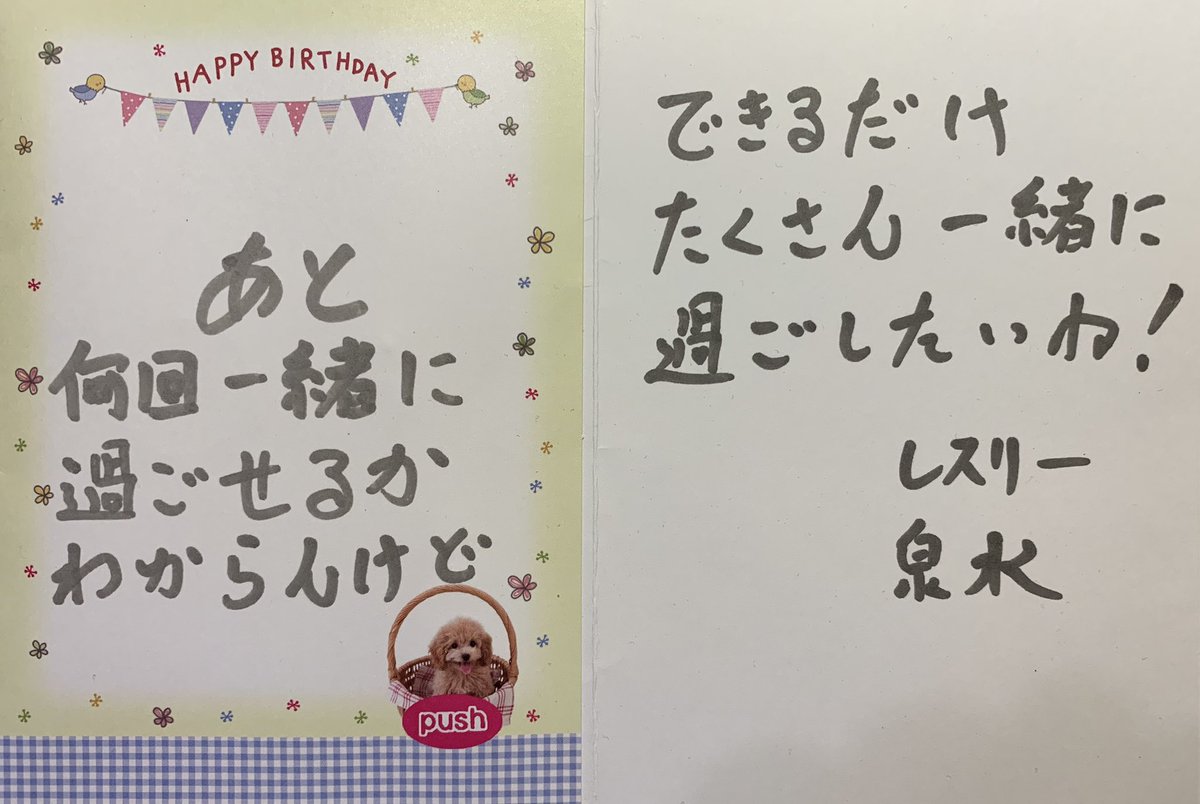 HAPPY BIRTHDAY
あと
何回一緒に
過ごせるか
わからんけど
push
できるだけ
たくさん一緒に
過ごしたいね!
レスリー
泉水